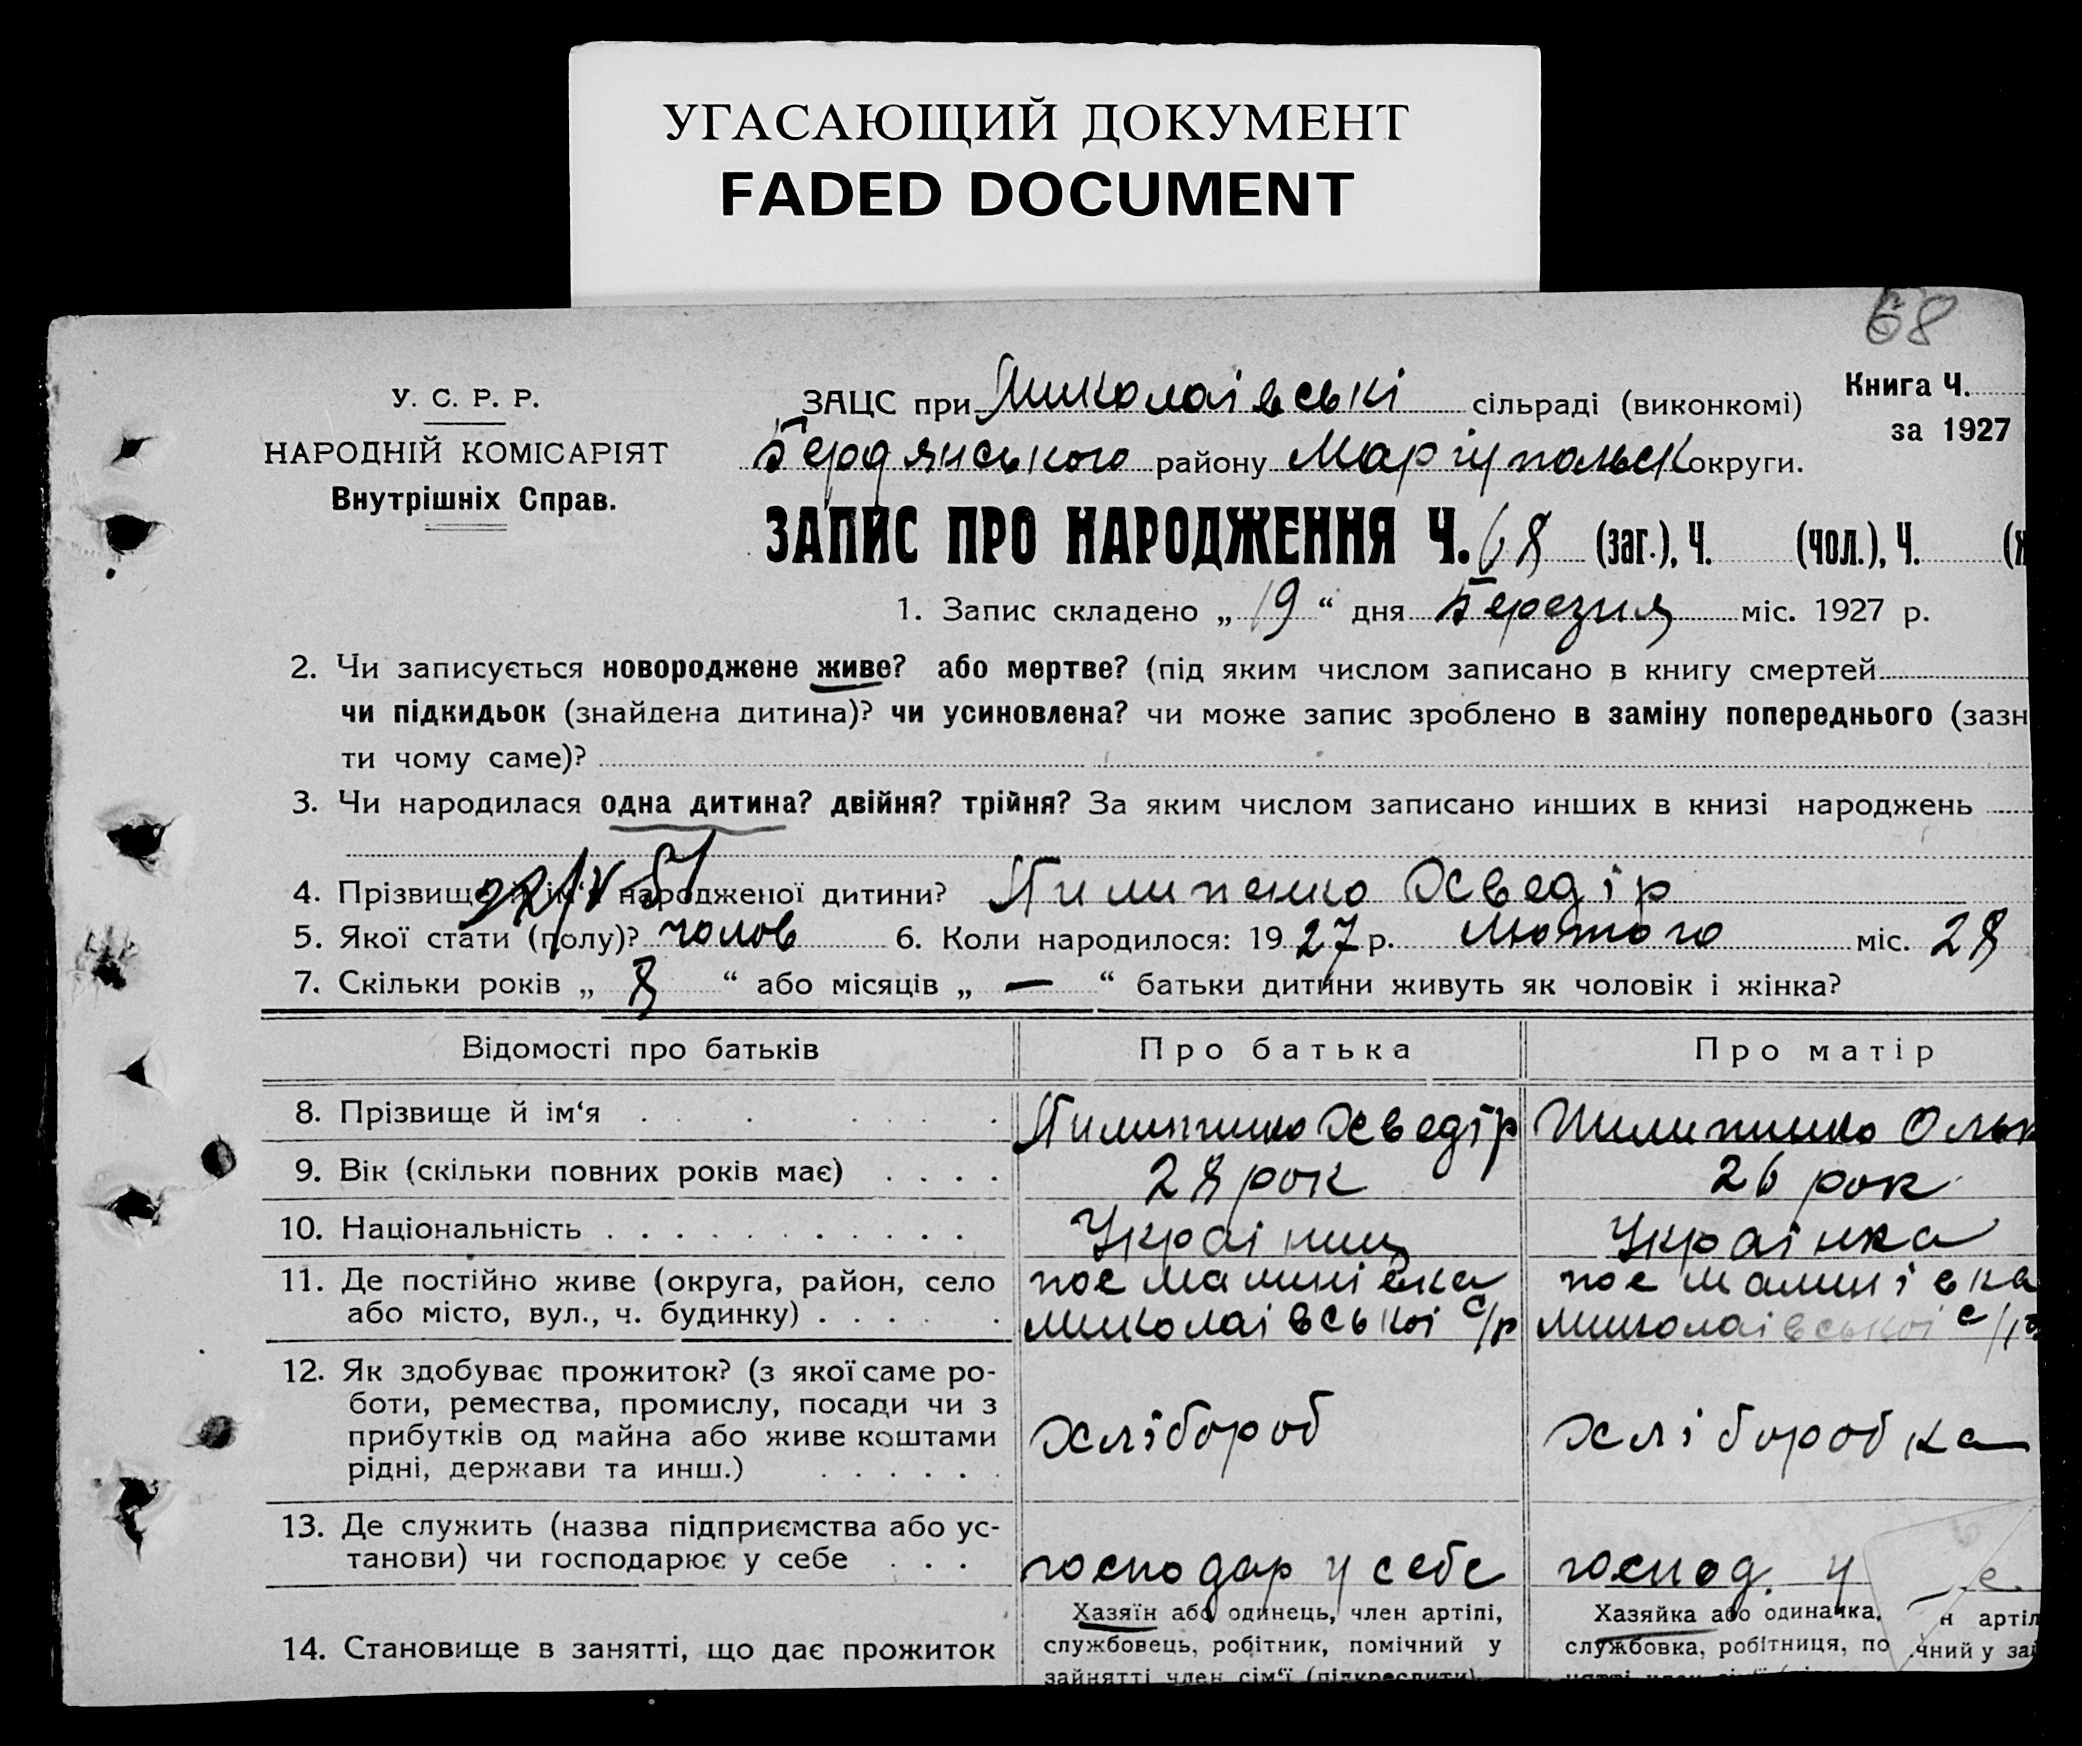 УГАСАЮЩИЙ ДОКУМЕНТ
FADED DOCUMENT
68
У. С. Р. Р.
НАРОДНІЙ КОМІСАРІЯТ
Внутрішніх Справ.
ЗАЦС при Миколаівські сільраді (виконкомі)
Книга Ч.
за 1927
Бердянського району Маріупольськ округи.
ЗАПИС ПРО НАРОДЖЕННЯ Ч. 68 (заг.), Ч. (чол.), Ч.
1. Запис складено „ 19 “ дня Березня міс. 1927 р.
2. Чи записується новороджене живе? або мертве? (під яким числом записано в книгу смертей
чи підкидьок (знайдена дитина)? чи усиновлена? чи може запис зроблено в заміну попереднього (зазн
ти чому саме)?
3. Чи народилася одна дитина? двійня? трійня? За яким числом записано инших в книзі народжень
4. Прізвище й ім‘я народженої дитини? Пилипенко Хведір
5. Якої стати (полу)? чолов 6. Коли народилося: 19 27 р. Лютого міс. 28
7. Скільки років „ 8 “ або місяців „ — “ батьки дитини живуть як чоловік і жінка?
Відомості про батьків Про батька Про матір
8. Прізвище й ім‘я . . . . . . Пилипенко Хведір Пилипенко Ольг
9. Вік (скільки повних років має) . . . . 28 рок 26 рок
10. Національність . . . . . . . . . . . Украінец Украінка
11. Де постійно живе (округа, район, село пос Малинівка пос Малинівка
або місто, вул., ч. будинку) . . . . . Миколаівськоі с/р Миколаівськоі с/р
12. Як здобуває прожиток? (з якої саме ро-
боти, ремества, промислу, посади чи з
прибутків од майна або живе коштами хлібороб хліборобка
рідні, держави та инш.) . . . . . .
13. Де служить (назва підприємства або ус-
танови) чи господарює у себе . . . господар у себе господ. у
Хазяїн або одинець, член артілі, Хазяйка або одиначка, н артіл
14. Становище в занятті, що дає прожиток службовець, робітник, помічний у службовка, робітниця, по чний у за
зайнятті член сім‘ї (підкреслити)